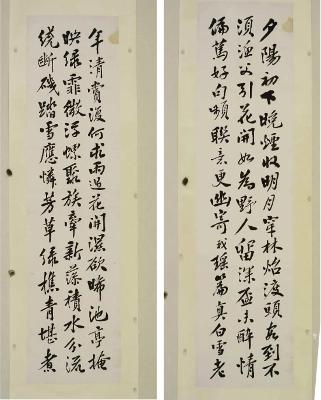 夕陽初下晚煙收明月穿林恰渡頭友到不
須漁父引花開如為野人留深盃未醉情
偏篤好句頻聯意更幽寄我瑤篇真白雪老
年清賞復何求雨過花開濕欲晞池亭掩
映綠霏微浮螺聚族牽新藻積水分流
繞斷磯踏雪應憐芳草綠樵青堪煮